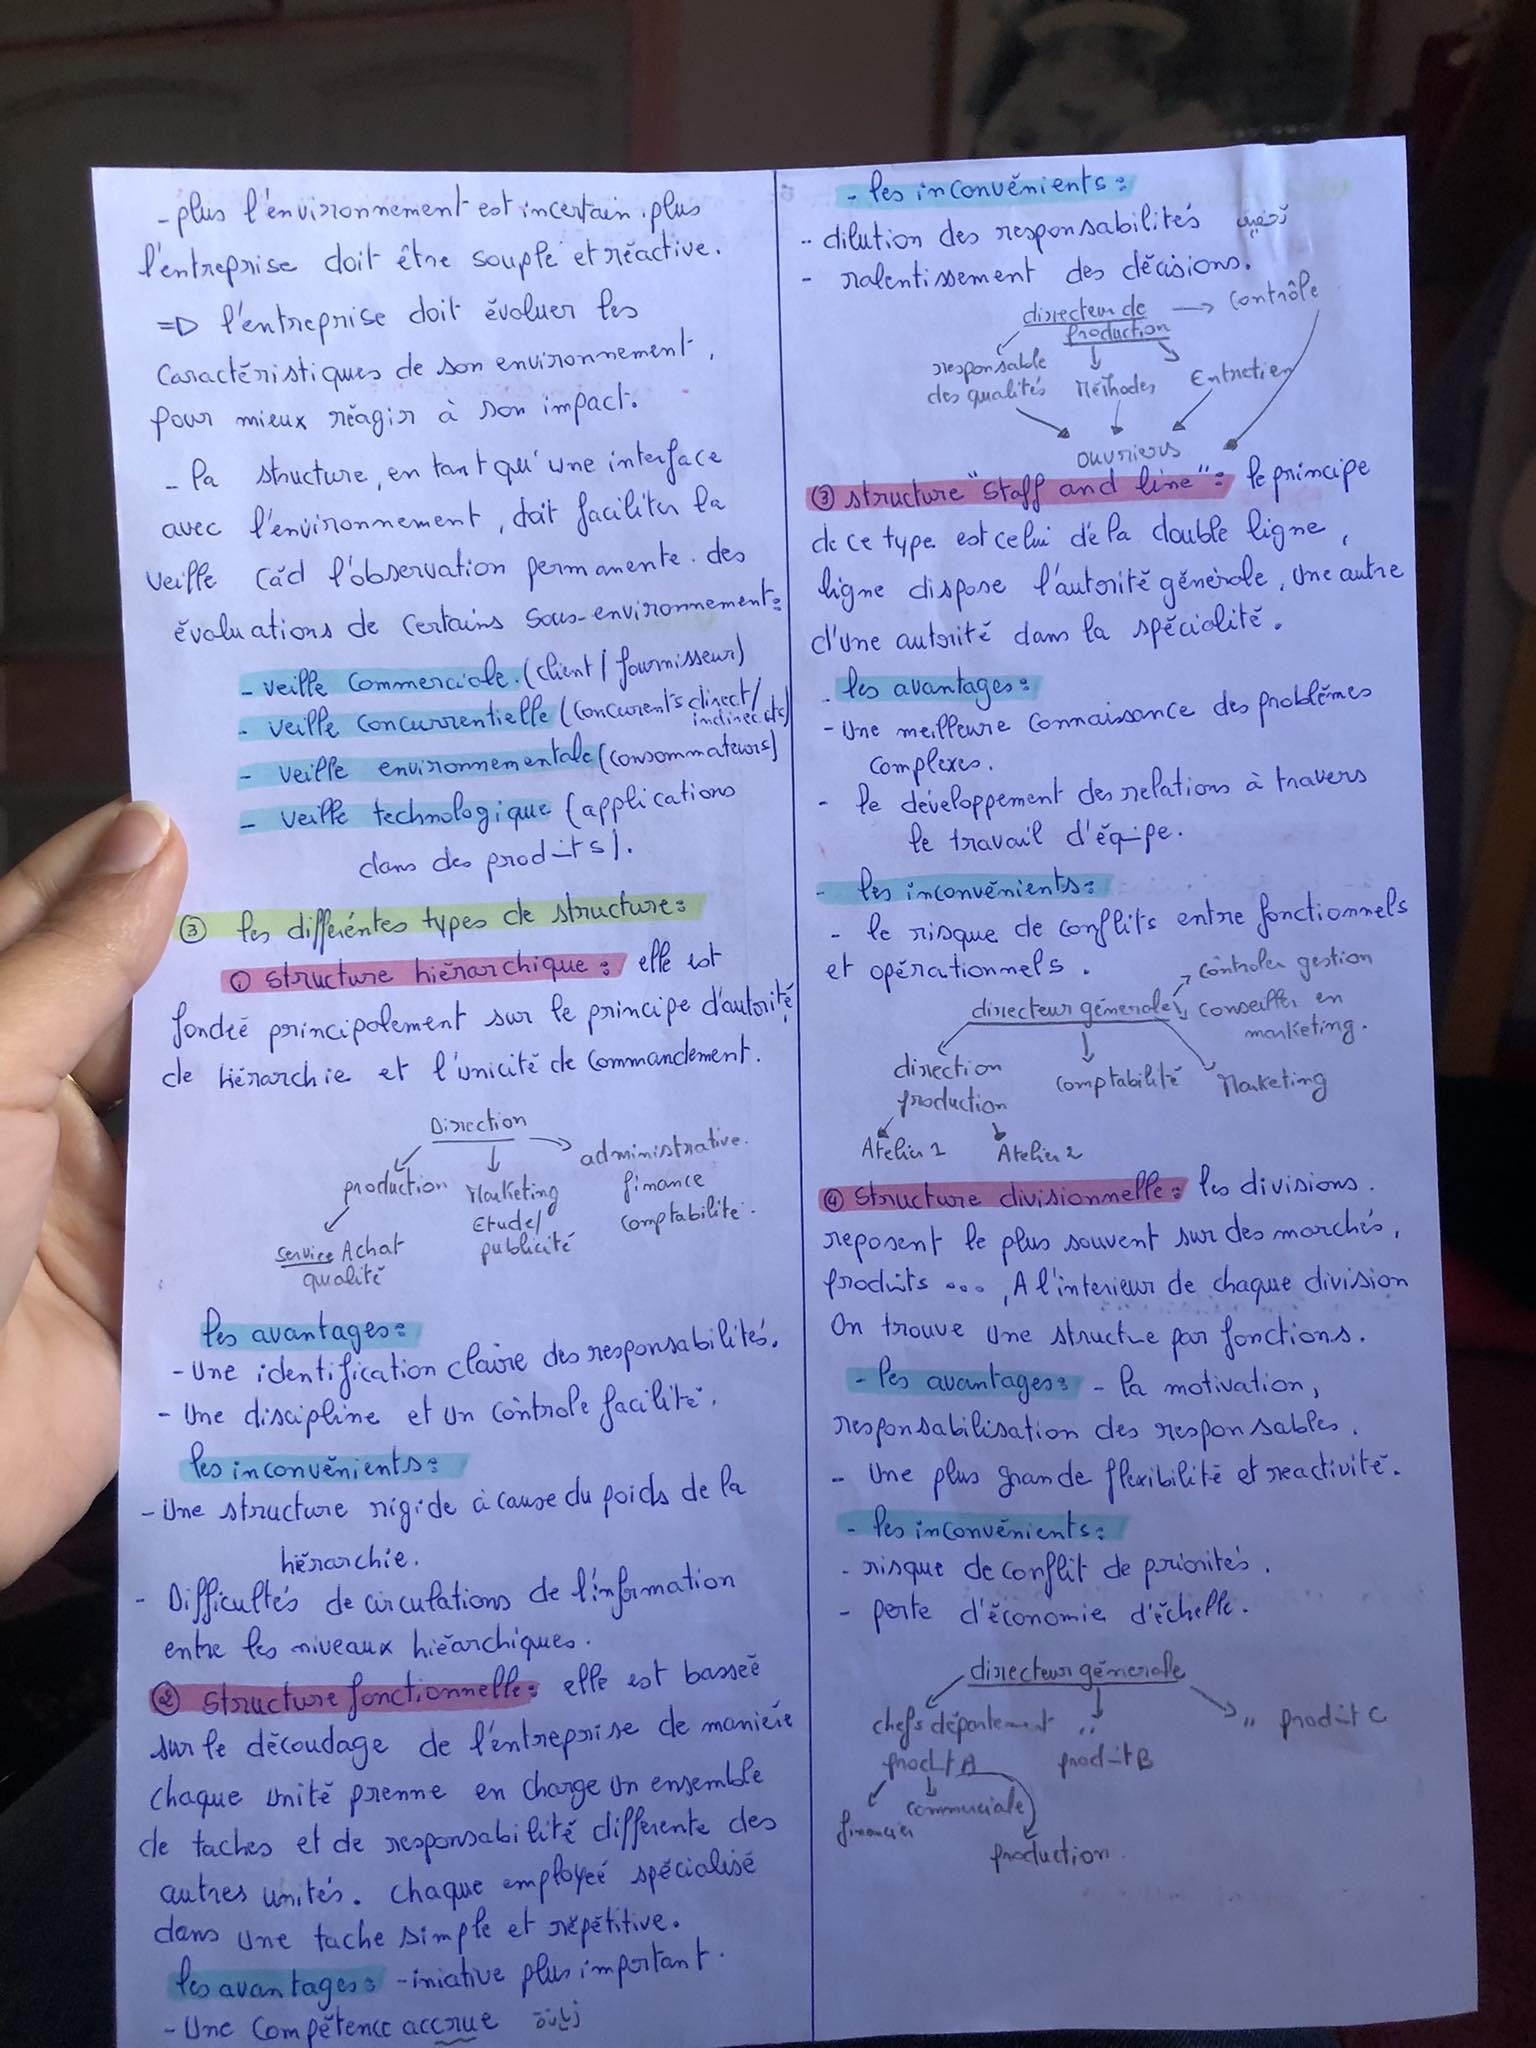 - plus l'environnement est incertain, plus
l'entreprise doit être souple et réactive.
=D l'entreprise doit évoluer les
caractéristiques de son environnement,
pour mieux réagir à son impact.
- la structure, en tant qu'une interface
avec l'environnement, doit faciliter la
veille càd l'observation permanente. des
évaluations de certains sous-environnement:
- veille commerciale. (client / fournisseur)
- veille concurrentielle (concurents direct/
indirects)
- veille environnementale (consommateurs)
- veille technologique (applications
dans des produits).
③ les différéntes types de structure:
① structure hiérarchique: elle est
fondeé principalement sur le principe d'autorité,
de hiérarchie et l'unicité de commandement.
Direction
production
Marketing
Etude/
publicité
administrative.
finance
comptabilité.
service Achat
qualité
les avantages:
- Une identification claire des responsabilités.
- Une discipline et un contrôle facilité.
les inconvénients:
- Une structure rigide à cause du poids de la
hiérarchie.
- Difficultés de circulations de l'information
entre les niveaux hiérarchiques.
② structure fonctionnelle: elle est basseé
sur le découdage de l'entreprise de maniére
chaque unité prenne en charge un ensemble
de taches et de responsabilité différente des
autres unités. chaque employeé spécialisé
dans une tache simple et répétitive.
les avantages: - iniative plus important.
- Une compétence accrue زيادة
- les inconvénients:
- dilution des responsabilités
- ralentissement des décisions.
directeur de
production → contrôle
responsable
des qualités
Méthodes
Entretien
ouvriers
③ structure "staff and line": le principe
de ce type est celui de la double ligne,
ligne dispose l'autorité générale, une autre
d'une autorité dans la spécialité.
- les avantages:
- Une meilleure connaissance des problèmes
complexes.
- le développement des relations à travers
le travail d'équipe.
- les inconvénients:
- le risque de conflits entre fonctionnels
et opérationnels.
directeur générale
contrôler gestion
conseiller en
marketing.
direction
production
comptabilité
Marketing
Atelier 1
Atelier 2
④ structure divisionnelle: les divisions.
reposent le plus souvent sur des marchés,
produits ..., A l'interieur de chaque division
On trouve une structure par fonctions.
- les avantages: - la motivation,
responsabilisation des responsables.
- Une plus grande flexibilité et reactivité.
- les inconvénients:
- risque de conflit de priorités.
- perte d'économie d'échelle.
directeur générale
chefs département
produit A
" produit B
" produit C
financier
commerciale
production.